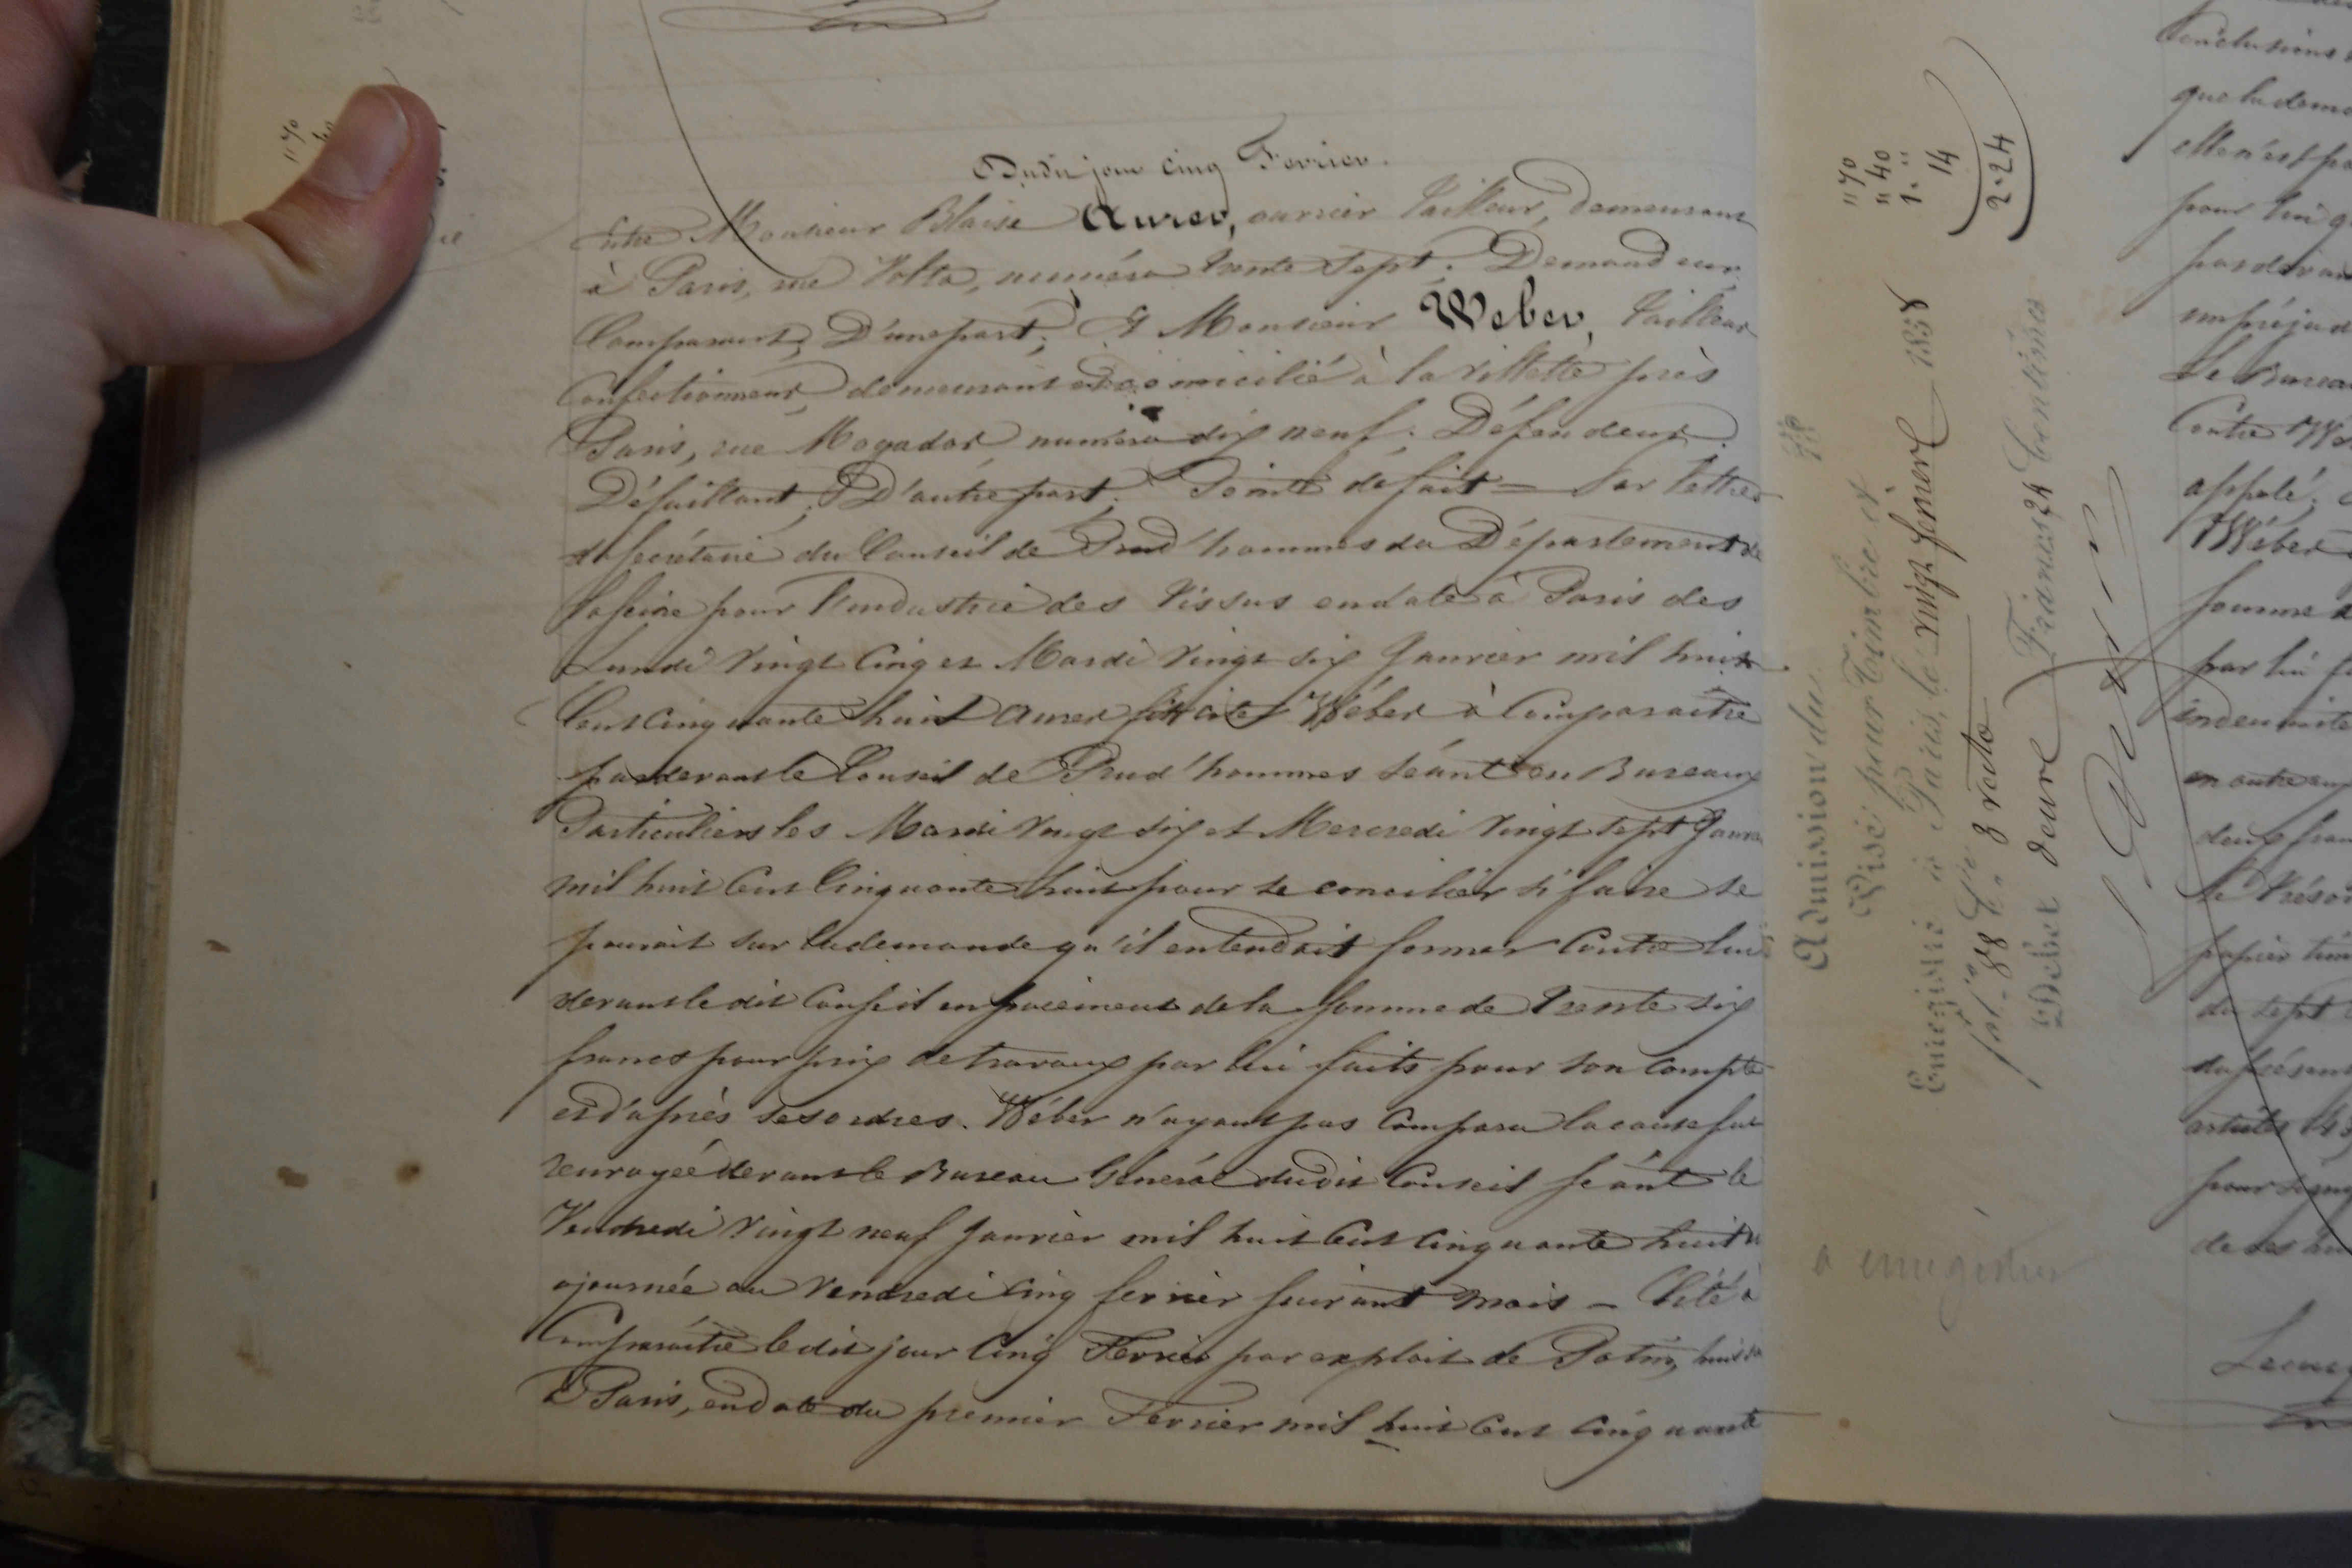 Dudit jour cinq Fevrier.
Entre Monsieur Blaise Aurer, ouvrier tailleur, demeurant
à Paris, rue Volta, numéro trente sept; Demandeur
Comparant; D'une part; Et Monsieur Weber, tailleur
Confectionneur, demeurant et domicilié à la Villette près
Paris, rue Mogador numéro dix neuf; Défendeur
Défaillant; D'autre part; Point de fait = Par lettres
du secrétaire du Conseil de Prud'hommes du Département de
la Seine pour l'industrie des tissus en date à Paris des
Lundi vingt cinq et Mardi vingt six Janvier mil huit
Cent cinquante huit Aurer fit citer Wéber à Comparaitre
pardevant le Conseil de Prud'hommes séant en Bureaux
Particuliers les Mardi vingt six et Mercredi vingt sept Janvr
mil huit Cent Cinquante huit pour se concilier si faire se
pouvait sur la demande qu'il entendait former Contre lui
devant le dit Conseil en paiement de la somme de trente six
francs pour prix de travaux par lui faits pour son Compte
et d'après ses ordres. Wéber n'ayant pas Comparu la cause fut
renvoyée devant le Bureau Général dudit Conseil séant le
Vendredi vingt neuf Janvier mil huit Cent Cinquante huit
ajournée au Vendredi cinq fevrier suivant mois - Cité à
Comparaitre le dit jour Cinq Fevrier par exploit de
à Paris, en date du premier Fevrier mil huit Cent Cinquante
" 70
" 40
1. "
14
2.24
Admission du
Visé pour Timbre et
Enregistré à Paris, le vingt février 1858
fol. 88 8 recto
Debet deux Francs 24 Centimes
a enregistrer
Conclusions
que la dem
elle n'est pa
pour lui q
par devan
un préjud
Le Bureau
Contre We
appelé;
Wéber
somme d
par lui f
indemnité
en outre aux
deux fran
le Trésor
papier tim
du sept
du présent
articles 43
pour signi
de ses
" 70